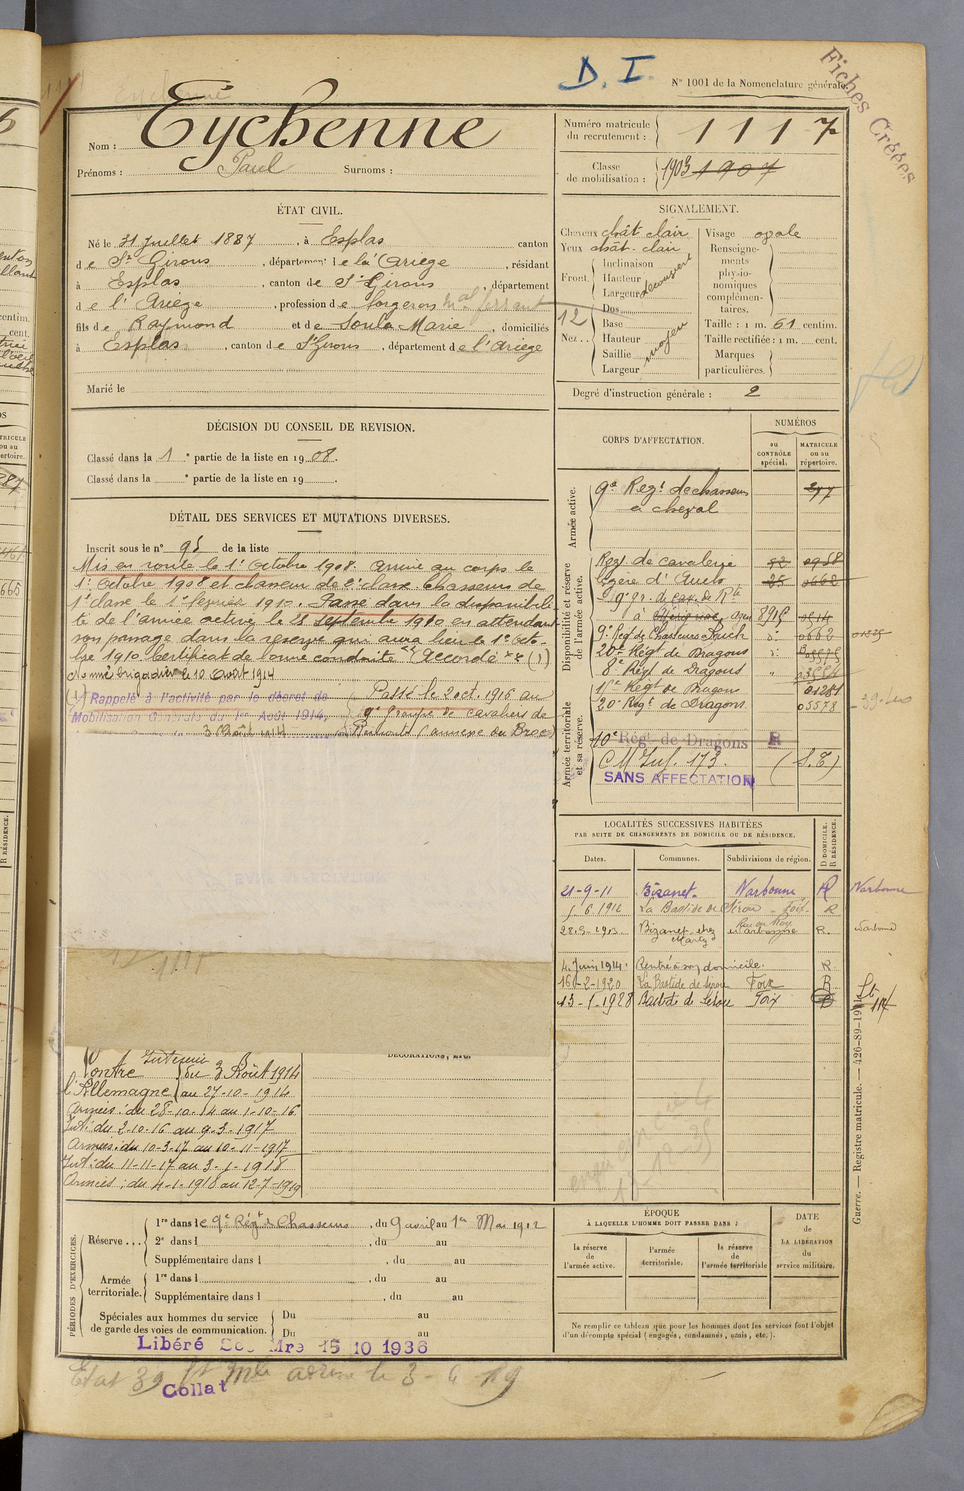 D. I.
N° 1001 de la Nomenclature générale.
Fiches Créées
Nom : Eychenne
Prénoms : Paul Surnoms :
Numéro matricule du recrutement : 1117
Classe de mobilisation : 1903 1907
ÉTAT CIVIL.
Né le 31 Juillet 1887, à Esplas canton
de St Girons, département de l'Ariège, résidant
à Esplas, canton de St Girons, département
de l'Ariège, profession de forgeron mal ferrant
fils de Raymond et de Soula Marie, domiciliés
à Esplas, canton de St Girons, département de l'Ariège
Marié le
SIGNALEMENT.
Cheveux chât clair
Yeux chât. clair
Front. Inclinaison
Hauteur
Largeur découvert
12
Nez.. Dos
Base
Hauteur moyen
Saillie
Largeur
Visage ovale
Renseignements physionomiques complémentaires.
Taille : 1 m. 61 centim.
Taille rectifiée : 1 m. cent.
Marques particulières.
Degré d'instruction générale : 2
DÉCISION DU CONSEIL DE REVISION.
Classé dans la 1 e partie de la liste en 1908.
Classé dans la e partie de la liste en 19 .
DÉTAIL DES SERVICES ET MUTATIONS DIVERSES.
Inscrit sous le n° 95 de la liste
Mis en route le 1er Octobre 1908. arrivé au corps le
1er Octobre 1908 et chasseur de 2e classe. Chasseur de
1e classe le 1er février 1910. Passé dans la disponibili
té de l'armée active le 28 septembre 1910 en attendant
son passage dans la réserve qui aura lieu le 1er Octo-
bre 1910 Certificat de bonne conduite "Accordé" (1)
Nommé brigadier le 10 Août 1914
(1) Rappelé à l'activité par le décret de
Mobilisation Générale du 1er Août 1914.
3 Août 1914
Passé le 2 oct. 1916 au
9e groupe de cavaliers de
Remonte (annexe du Broc)
CORPS D'AFFECTATION.
NUMÉROS
au CONTRÔLE spécial.
MATRICULE ou au répertoire.
Armée active.
9e Regt de chasseurs 277
à cheval
Disponibilité et réserve de l'armée active.
Regt de cavalerie 52 0958
légère d'Auch 25 0662
9e gr. de cav. de Rte
à 8915 0514
9e Reg. de Chasseurs Auch d° 0662
20e Regt de Dragons
8e Regt de Dragons
1er Regt de Dragons 01281
20e Regt de Dragons 05578
Armée territoriale et sa réserve.
10e Rég. de Dragons R
C M Inf. 173. (S. T)
SANS AFFECTATION
LOCALITÉS SUCCESSIVES HABITÉES
PAR SUITE DE CHANGEMENTS DE DOMICILE OU DE RÉSIDENCE.
Dates. Communes. Subdivisions de région. D DOMICILE. R RÉSIDENCE.
21-9-11 Bizanet. Narbonne R Narbonne
1.6.1912 La Bastide de Sérou Foix R
28.9.1913 Bizanet, chez Narbonne R. Narbonne
4. Juin 1914. Rentré à son domicile. R
16-2-1920 La Bastide de Sérou Foix R
13-1-1928 Bastide de Sérou Foix
DÉCORATIONS, ETC.
Contre Intérieur
l'Allemagne du 3 Août 1914
au 27-10-1914
Armées : du 28-10-14 au 1-10-16
Int. : du 2-10-16 au 9-3-1917
Armées : du 10-3-17 au 10-11-1917
Int. : du 11-11-17 au 3-1-1918
Armées : du 4-1-1918 au 12-7-1919
PÉRIODES D'EXERCICES.
Réserve...
1re dans le 9e Régt de Chasseurs, du 9 avril au 1er Mai 1912
2e dans l , du au
Supplémentaire dans l , du au
Armée territoriale.
1re dans l , du au
Supplémentaire dans l , du au
Spéciales aux hommes du service de garde des voies de communication.
Du au
Du au
ÉPOQUE
À LAQUELLE L'HOMME DOIT PASSER DANS :
la réserve de l'armée active.
l'armée territoriale.
la réserve de l'armée territoriale
DATE DE LA LIBÉRATION du service militaire.
Ne remplir ce tableau que pour les hommes dont les services font l'objet
d'un décompte spécial (engagés, condamnés, omis, etc.).
Guerre. — Registre matricule. — 426-89-1911.
Libéré Mre 15 10 1936
Collat